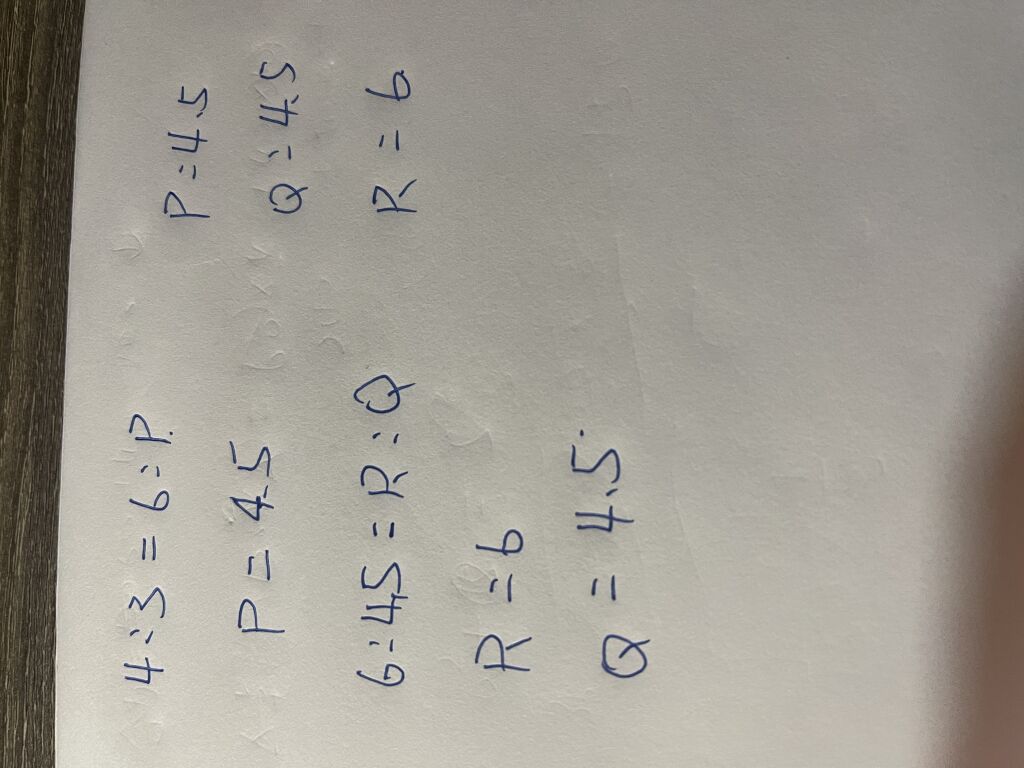 4:3 = 6:P.
P = 4.5
6:4.5 = R:Q
R = 6
Q = 4.5.
P = 4.5
Q = 4.5
R = 6